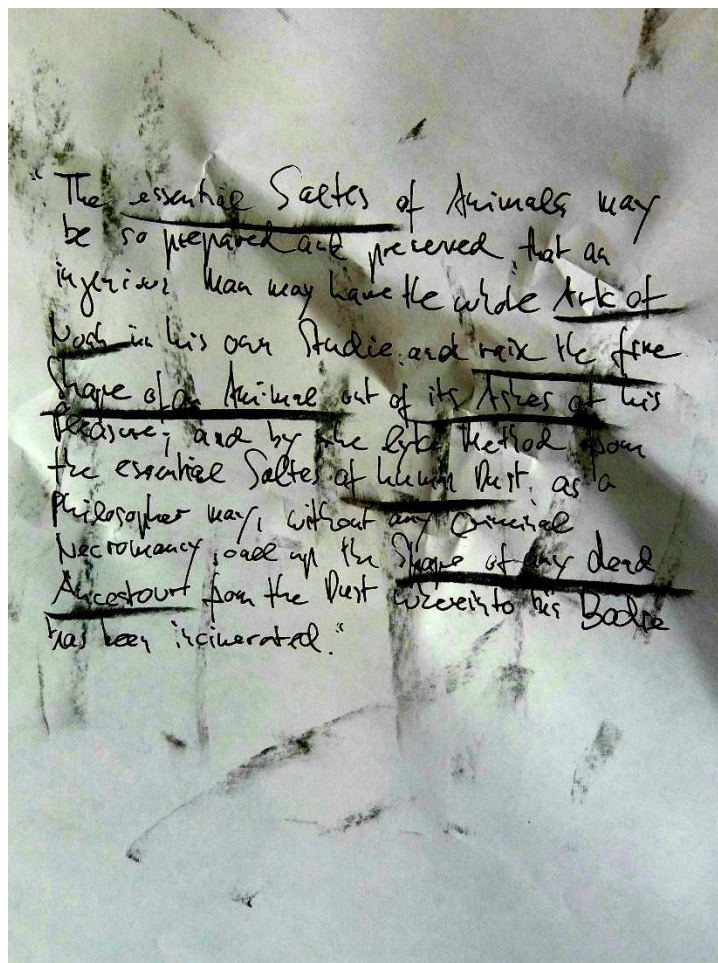 "The essential Saltes of Animals may
be so prepared and preserved, that an
ingenious Man may have the whole Ark of
Noah in his own Studie, and raise the fine
Shape of an Animal out of its Ashes at his
Pleasure; and by the lyke Method from
the essential Saltes of human Dust, as a
Philosopher may, without any Criminal
Necromancy, call up the Shape of any dead
Ancestour from the Dust whereinto his Bodie
has been incinerated."